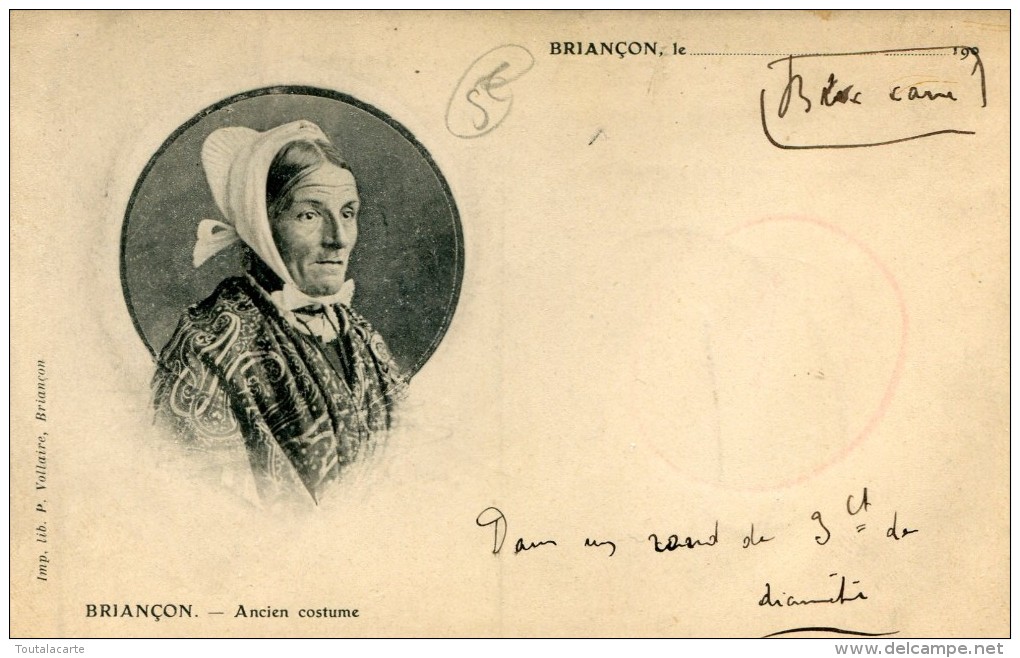 BRIANÇON, le ........................ 190
5€
carré
Imp. lib. P. Vollaire, Briançon
Dans un rond de 3 ct de
BRIANÇON. — Ancien costume
Toutalacarte
delcampe.net